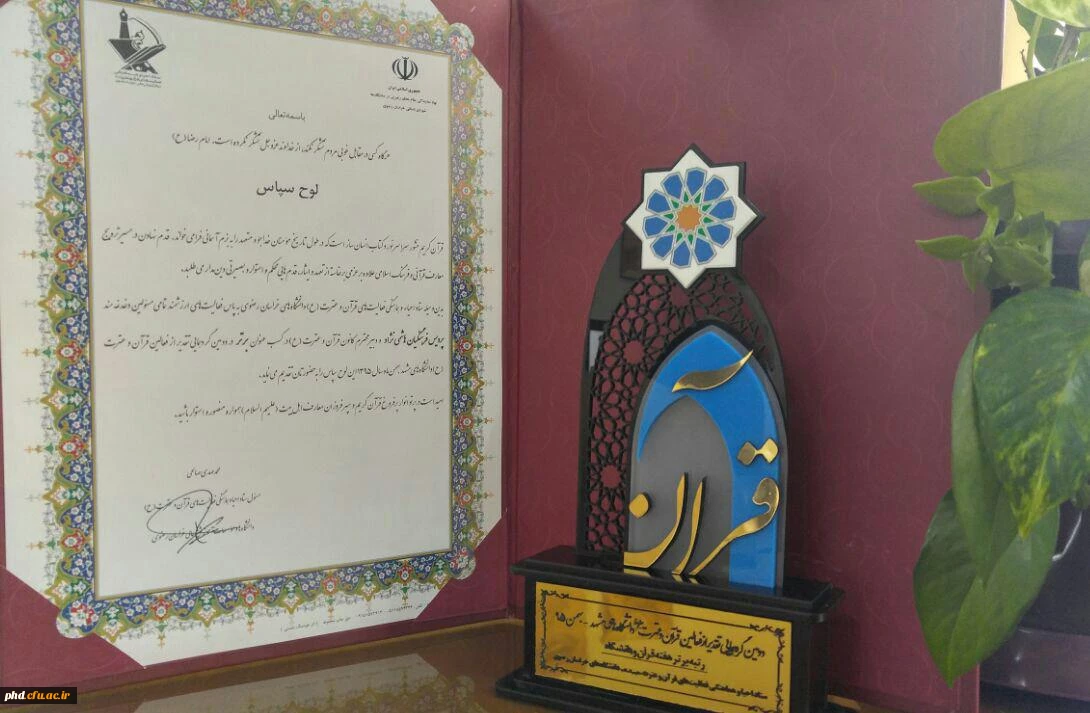 جمهوری اسلامی ایران
نهاد نمایندگی مقام معظم رهبری در دانشگاه‌ها
باسمه تعالی
هرگاه کسی در مقابل خوبی مردم تشکر نکند، از خداوند عزوجل تشکر نکرده است. امام رضا(ع)
لوح سپاس
قرآن کریم منشور سراسر نور و کتاب انسان ساز است که در طول تاریخ مومنان خداجو و متعهد را به بزم آسمانی فرا می خواند. قدم نهادن در مسیر ترویج
معارف قرآنی و فرهنگ اسلامی علاوه بر عزمی برخاسته از تعهد و ایثار، قدم هایی محکم و استوار و بصیرتی دین مدار می طلبد.
بدین وسیله ستاد احیاء و هماهنگی فعالیت های قرآن و عترت (ع) دانشگاه های خراسان رضوی به پاس فعالیت های ارزشمند تمامی مسئولین دغدغه مند
پردیس فرهنگیان هاشمی نژاد و دبیر محترم کانون قرآن و عترت (ع) در کسب عنوان برتر در دومین گردهمایی تقدیر از فعالین قرآن و عترت
(ع) دانشگاه های مشهد بهمن ماه سال ۱۳۹۵ این لوح سپاس را به حضورتان تقدیم می نماید.
امید است در پرتو انوار پرفروغ قرآن کریم و سپهر فروزان معارف اهل بیت (علیهم السلام) همواره منصور و استوار باشید.
محمد مهدی صالحی
مسئول ستاد احیاء و هماهنگی فعالیت های قرآن و عترت (ع)
خراسان رضوی
قرآن
دومین گردهمایی تقدیر از فعالین قرآن و عترت دانشگاه های مشهد - بهمن ۹۵
رتبه برتر هفته قرآن و دانشگاه
ستاد احیا و هماهنگی فعالیت های قرآن و عترت دانشگاه های خراسان رضوی
phd.cfu.ac.ir